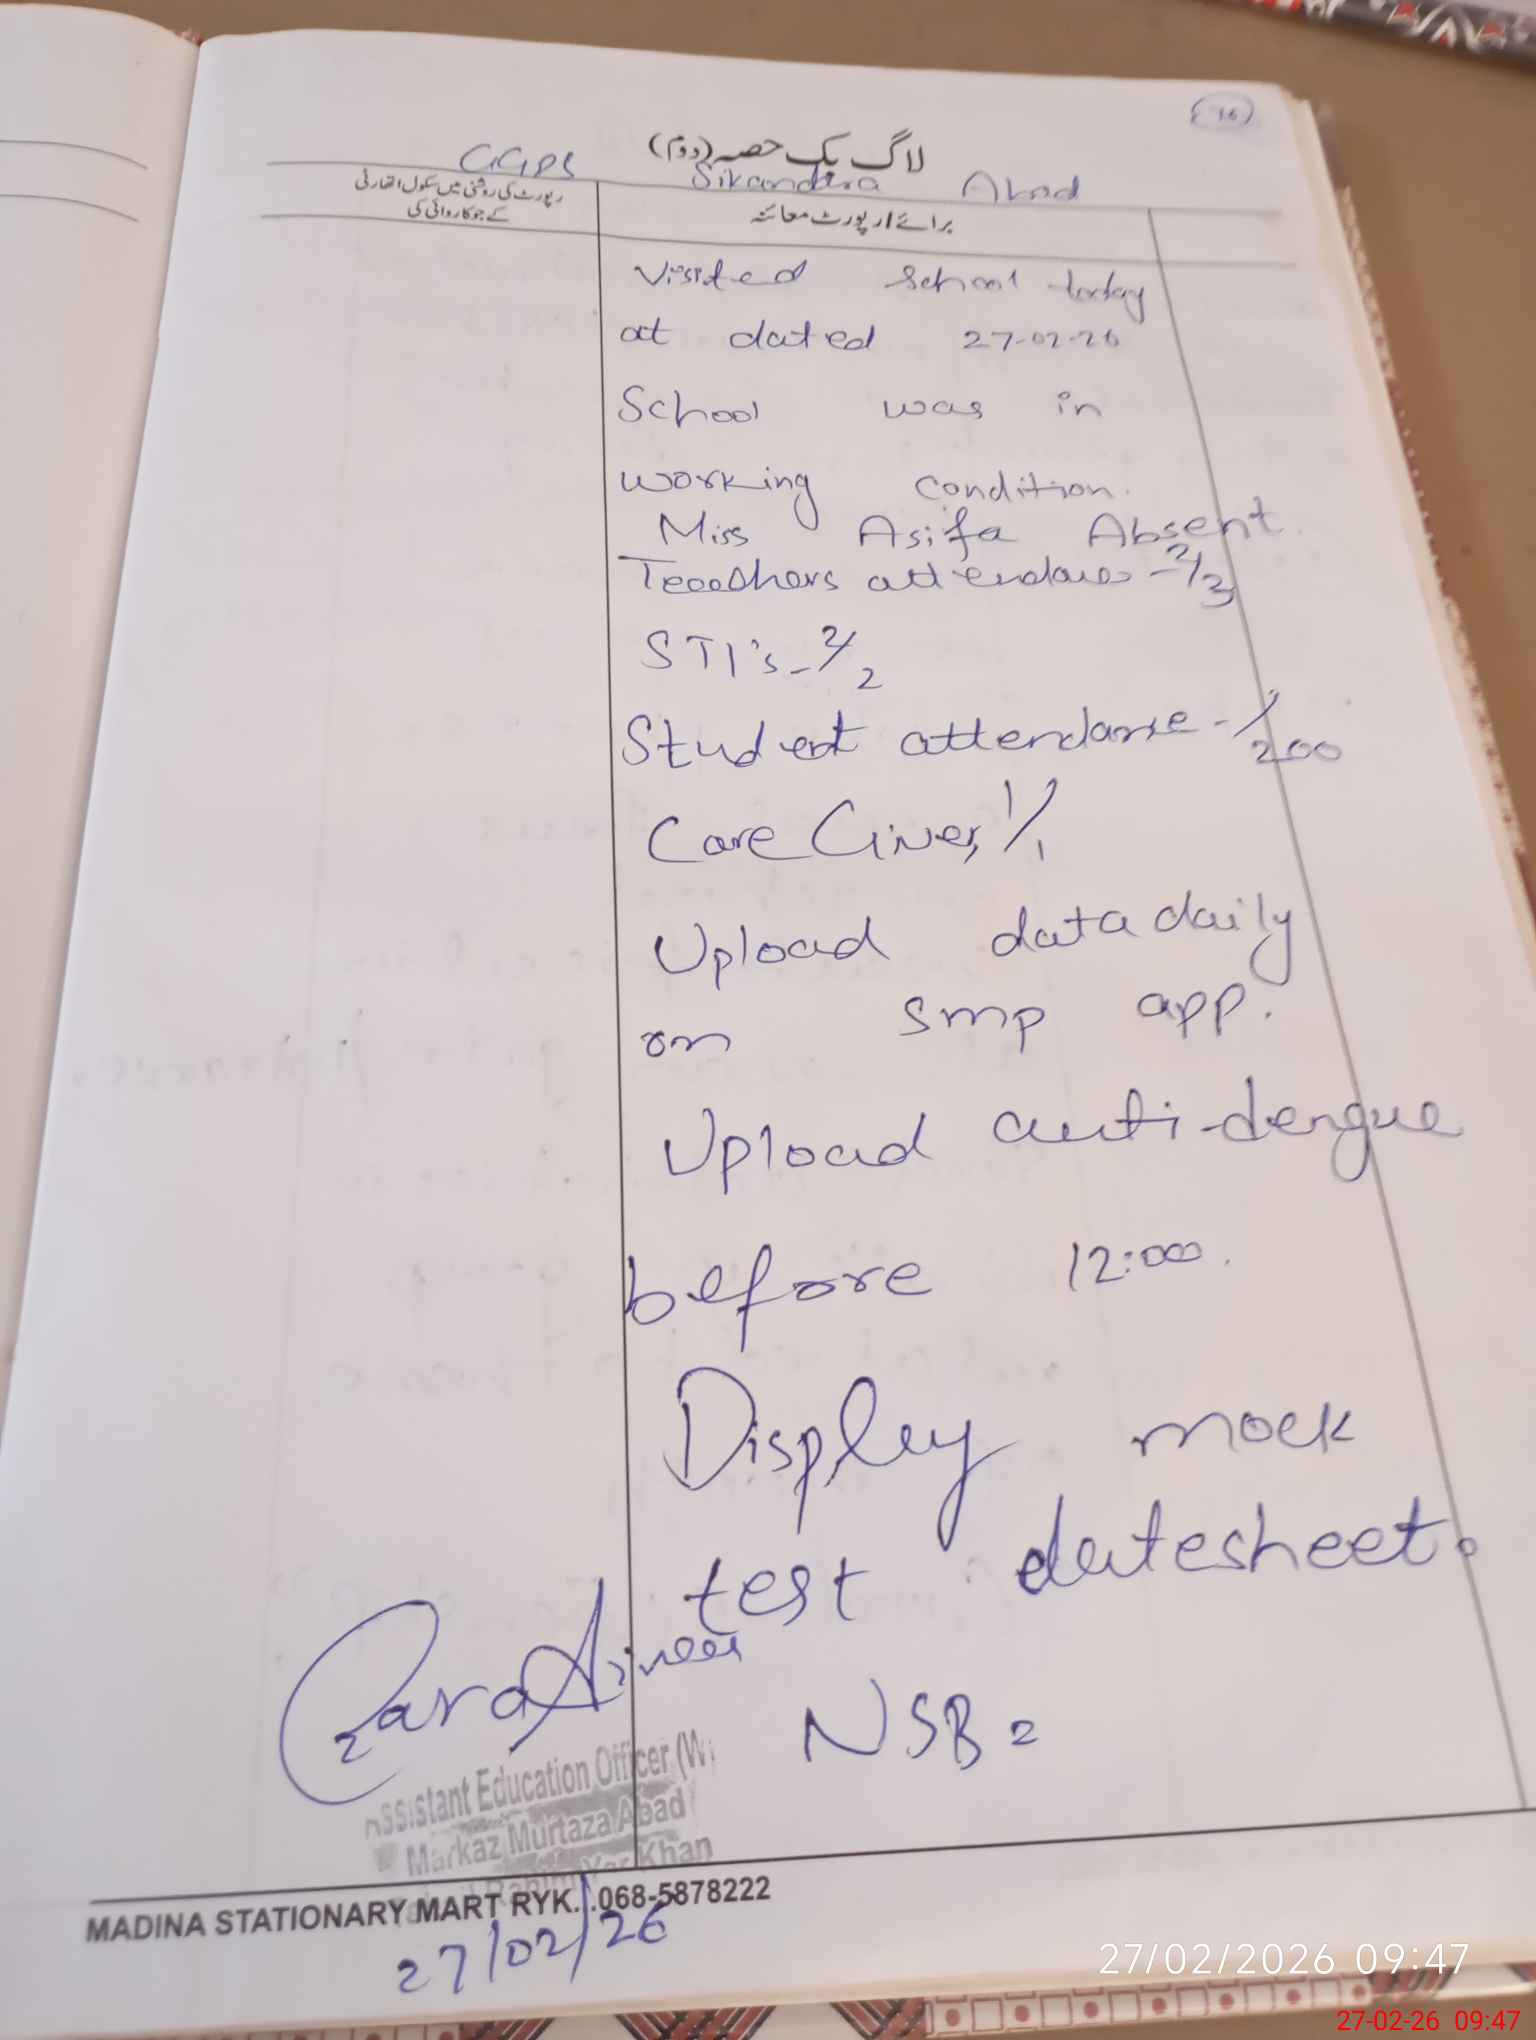 (76)
لاگ بک حصہ (دوم)
GGPS Sikandara Abad
رپورٹ کی روشنی میں سکول اتھارٹی
کے جو کاروائی کی
برائے ار پورٹ معائنہ
Visited School today
at dated 27-02-26
School was in
working condition.
Miss Asifa Absent
Teeachers attendance - 2/3
STI's - 2/2
Student attendance - /200
Care Giver, 1/1
Upload data daily
on smp app.
Upload anti-dengue
before 12:00.
Display mock
test datesheet.
NSB =
Assistant Education Officer (W
Markaz Murtaza Abad
Rahim Yar Khan
MADINA STATIONARY MART RYK. .068-5878222
27/02/26
27/02/2026 09:47
27-02-26 09:47